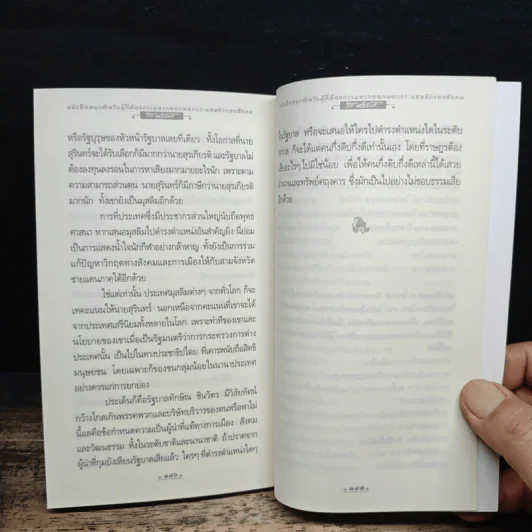 หรือรัฐบุรุษของหัวหน้ารัฐบาลเลยทีเดียว ทั้งโอกาสที่นาย
สุรินทร์จะได้รับเลือกก็มีมากกว่านายสุรเกียรติ์ และรัฐบาลไม่
ต้องลงทุนลงรอนในการหาเสียงมากมายอะไรนัก เพราะตาม
ความสามารถส่วนตน นายสุรินทร์ก็มีภาษีกว่านายสุรเกียรติ์
มากนัก ทั้งเขายังเป็นมุสลิมอีกด้วย
การที่ประเทศซึ่งมีประชากรส่วนใหญ่นับถือพุทธ
ศาสนา หากเสนอมุสลิมไปดำรงตำแหน่งอันสำคัญยิ่ง นี่ย่อม
เป็นการแสดงน้ำใจนักกีฬาอย่างกล้าหาญ ทั้งยังเป็นการร่วม
แก้ปัญหาวิกฤตทางสังคมและการเมืองให้กับสามจังหวัด
ชายแดนภาคใต้อีกด้วย
ใช่แต่เท่านั้น ประเทศมุสลิมต่างๆ จากทั่วโลก ก็จะ
เทคะแนนให้นายสุรินทร์ นอกเหนือจากคะแนนที่เขาจะได้
จากประเทศเสรีนิยมทั้งหลายในโลก เพราะท่าทีของเขาและ
นโยบายของเขาเมื่อเป็นรัฐมนตรีว่าการกระทรวงการต่าง
ประเทศนั้น เป็นไปในทางประชาธิปไตย ที่เคารพนับถือสิทธิ
มนุษยชน โดยเฉพาะก็ของชนกลุ่มน้อยในนานาประเทศ
อย่างควรแก่การยกย่อง
ประเด็นก็คือรัฐบาลทักษิณ ชินวัตร มีวิสัยทัศน์
กว้างไกลเกินพรรคพวกและบริษัทบริวารของตนหรือหาไม่
นี่แลคือข้อกำหนดความเป็นผู้นำที่แท้ทางการเมือง สังคม
และวัฒนธรรม ทั้งในระดับชาติและนานาชาติ ถ้าปราศจาก
ผู้นำที่กุมบังเหียนรัฐบาลเสียแล้ว ใครๆ ที่ดำรงตำแหน่งใดๆ
๑๗๖
ในรัฐบาล หรือจะเสนอให้ใครไปดำรงตำแหน่งใดในระดับ
สากล ก็จะได้แต่คนกึ่งดิบกึ่งดีเท่านั้นเอง โดยที่ราษฎรต้อง
เสียอะไรๆ ไปมิใช่น้อย เพื่อให้คนกึ่งดิบกึ่งดีเหล่านี้ได้เสวย
อำนาจและทรัพย์ศฤงคาร ซึ่งมักเป็นไปอย่างไม่ชอบธรรมเสีย
อีกด้วย
๑๗๗